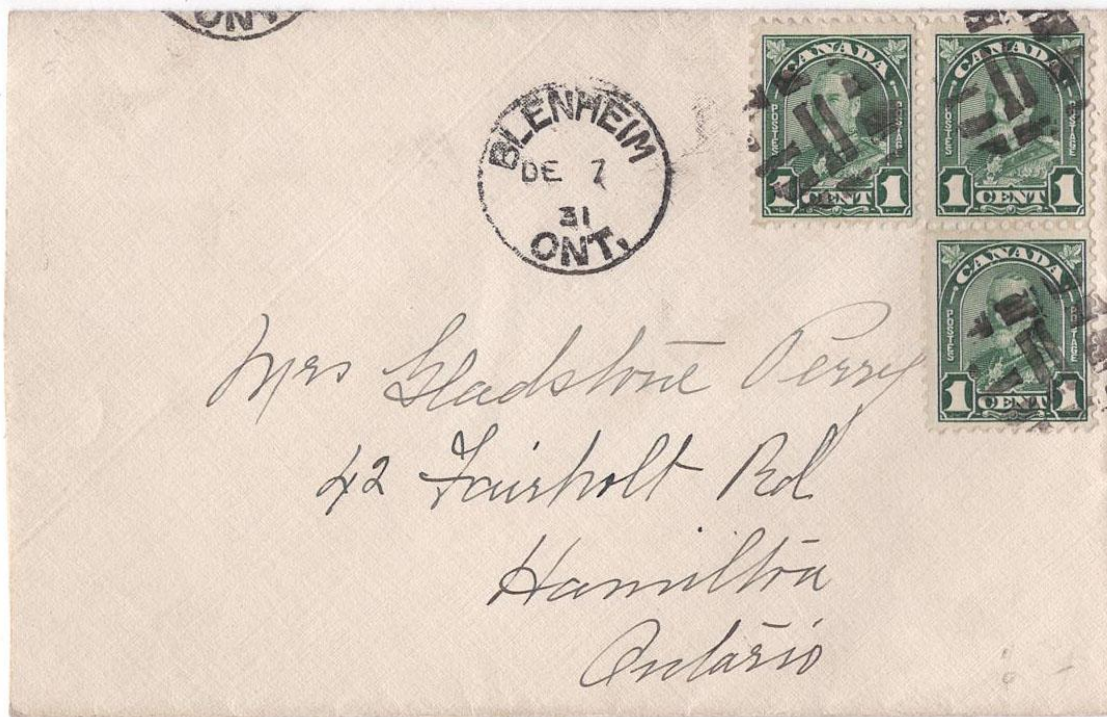 ONT.
BLENHEIM
DE 7
31
ONT.
CANADA
POSTES POSTAGE
1 CENT 1
CANADA
POSTES POSTAGE
1 CENT 1
CANADA
POSTES POSTAGE
1 CENT 1
Mrs Gladstone Perry
42 Fairholt Rd
Hamilton
Ontario